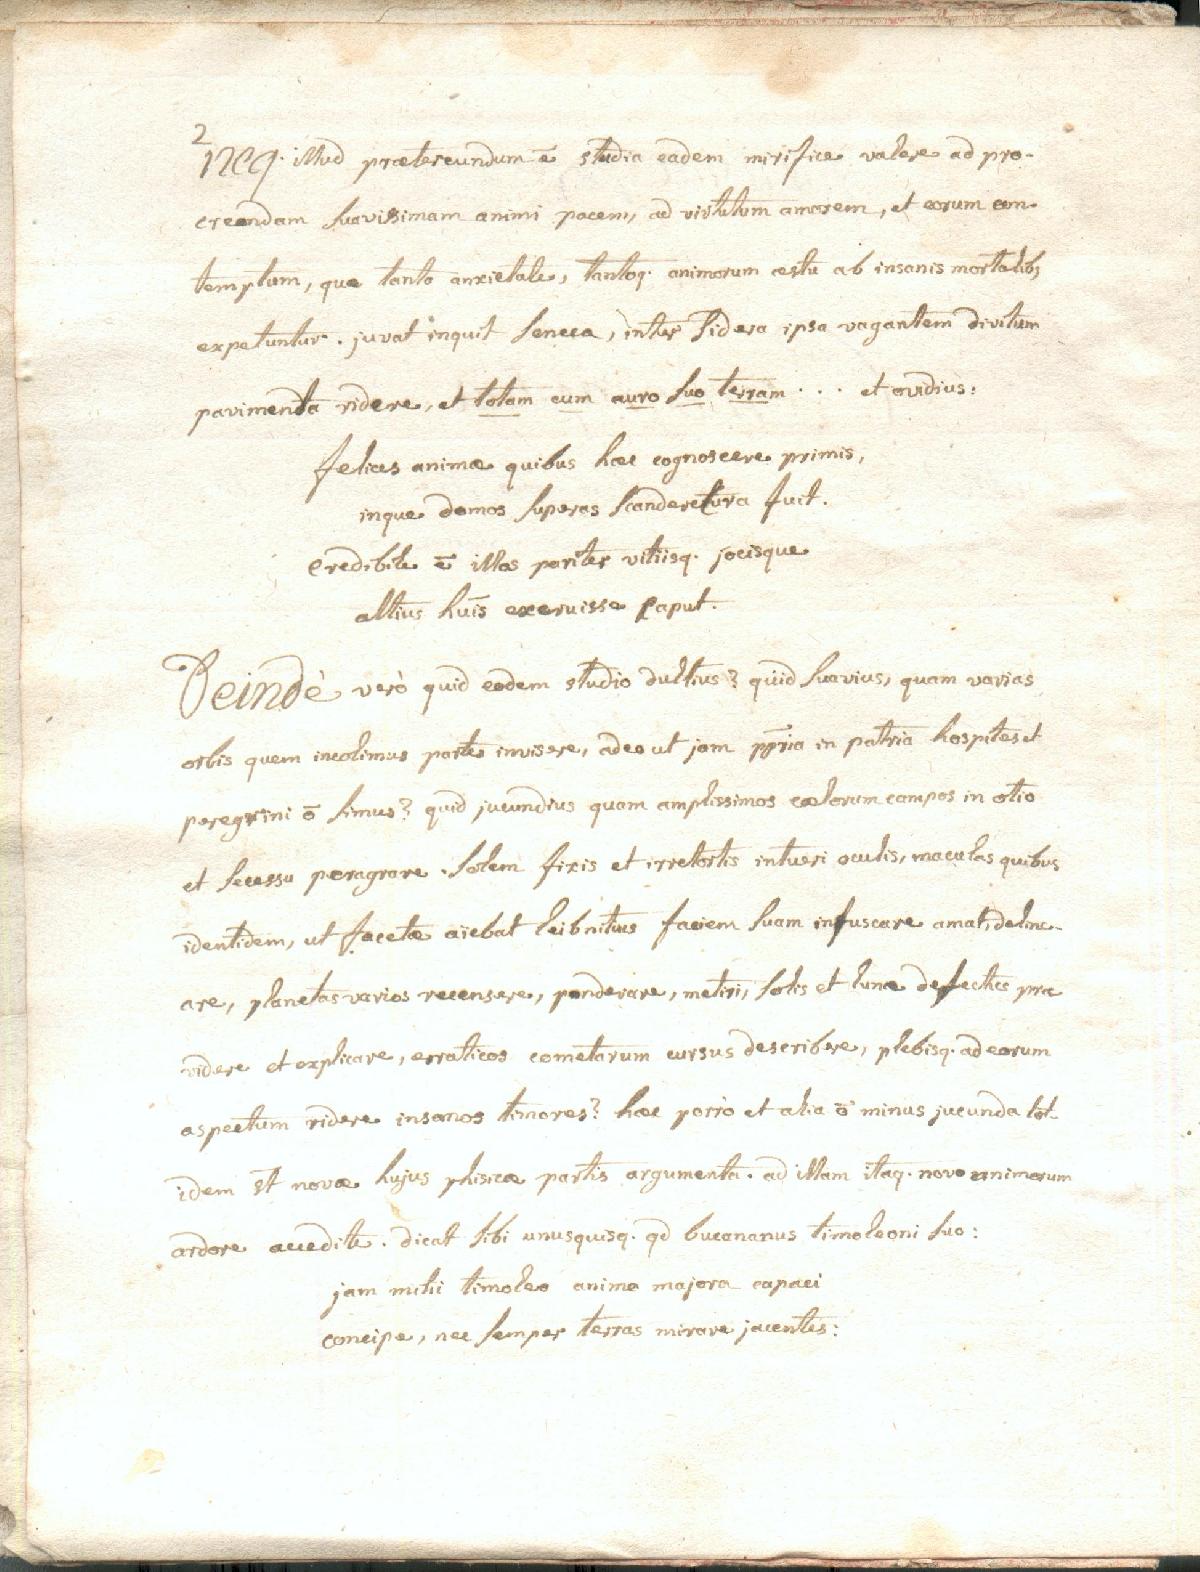 2
Neq. illud prætereundum ē studia eadem mirifice valere ad pro-
creandam suavissimam animi pacem, ad virtutum amorem, et eorum con-
temptum, quæ tanta anxietate, tantoq. animorum æstu ab insanis mortalibs
expetuntur. juvat inquit Seneca, inter Sidera ipsa vagantem divitum
pavimenta ridere, et totam cum auro suo terram . . . et ovidius:
felices animæ quibus hæc cognoscere primis,
inque domos superas scandere cura fuit.
Credibile ē illos pariter vitiisq. jocisque
altius huīs exeruisse caput.
Deindè verò quid eodem studio dultius? quid suavius, quam varias
orbis quem incolimus partes invisere, adeo ut jam ppria in patria hospites et
peregrini ō simus? quid jucundius quam amplissimos cœlorum campos in otio
et secessu peragrare. Solem fixis et irretortis intueri oculis, maculas quibus
identidem, ut facetæ aiebat leibnitius faciem suam infuscare amat, deline-
are, planetas varios recensere, ponderare, metiri, solis et lunæ defectus præ
videre et explicare, erraticos cometarum cursus describere, plebisq. ad eorum
aspectum ridere insanos timores? hæc porrò et alia ō minus jucunda tot-
idem st novæ hujus phisicæ partis argumenta. ad illam itaq. novo animorum
ardore accedite. dicat sibi unusquisq. qd bucananus timoleoni suo:
jam mihi timoleo animo majora capaci
concipe, nec semper terras mirare jacentes: